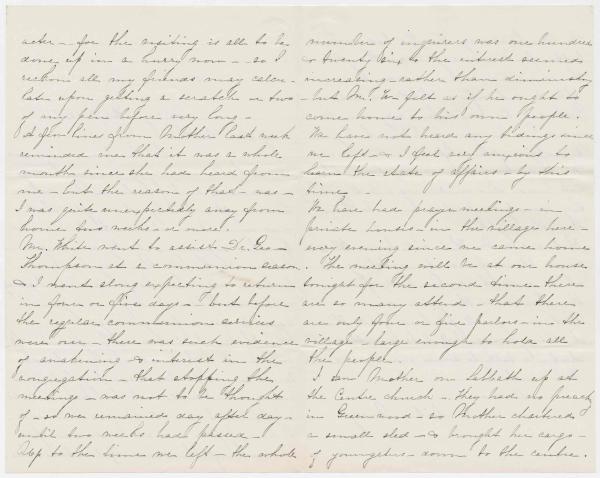 acter - for the visiting is all to be
done up in a hurry now - so I
reckon all my friends may calcu-
late upon getting a scratch or two
of my pen before very long -
A few lines from Mother last week
reminded me that it was a whole
month since she had heard from
me - but the reason of that - was -
I was quite unexpectedly away from
home two weeks - or more.
Mr. White went to assist Dr. Geo -
Thompson at a communion season.
& I went along expecting to return
in four or five days - but before
the regular communion services
were over - there was such evidence
of awakening & interest in the
congregation - that stopping the
meetings - was not to be thought
of - so we remained day after day -
until two weeks had passed -
Up to the time we left - the whole
number of inquirers was one hundred
& twenty six & the interest seemed
increasing - rather than diminishing
- but Mr. W. felt as if he ought to
come home to his own people.
We have not heard any tidings since
we left - & I feel very anxious to
learn the state of affairs - by this
time -
We have had prayer meetings - in
private houses - in the village here -
every evening since we came home
. The meeting will be at our house
tonight for the second time - there
are so many attend - that there
are only four or five parlors - in the
village - large enough to hold all
the people.
I saw Mother on Sabbath up at
the Centre church - they had no preachg
in Greenwood - so Mother chartered
a small sled - & brought her cargo -
of youngsters - down to the centre.